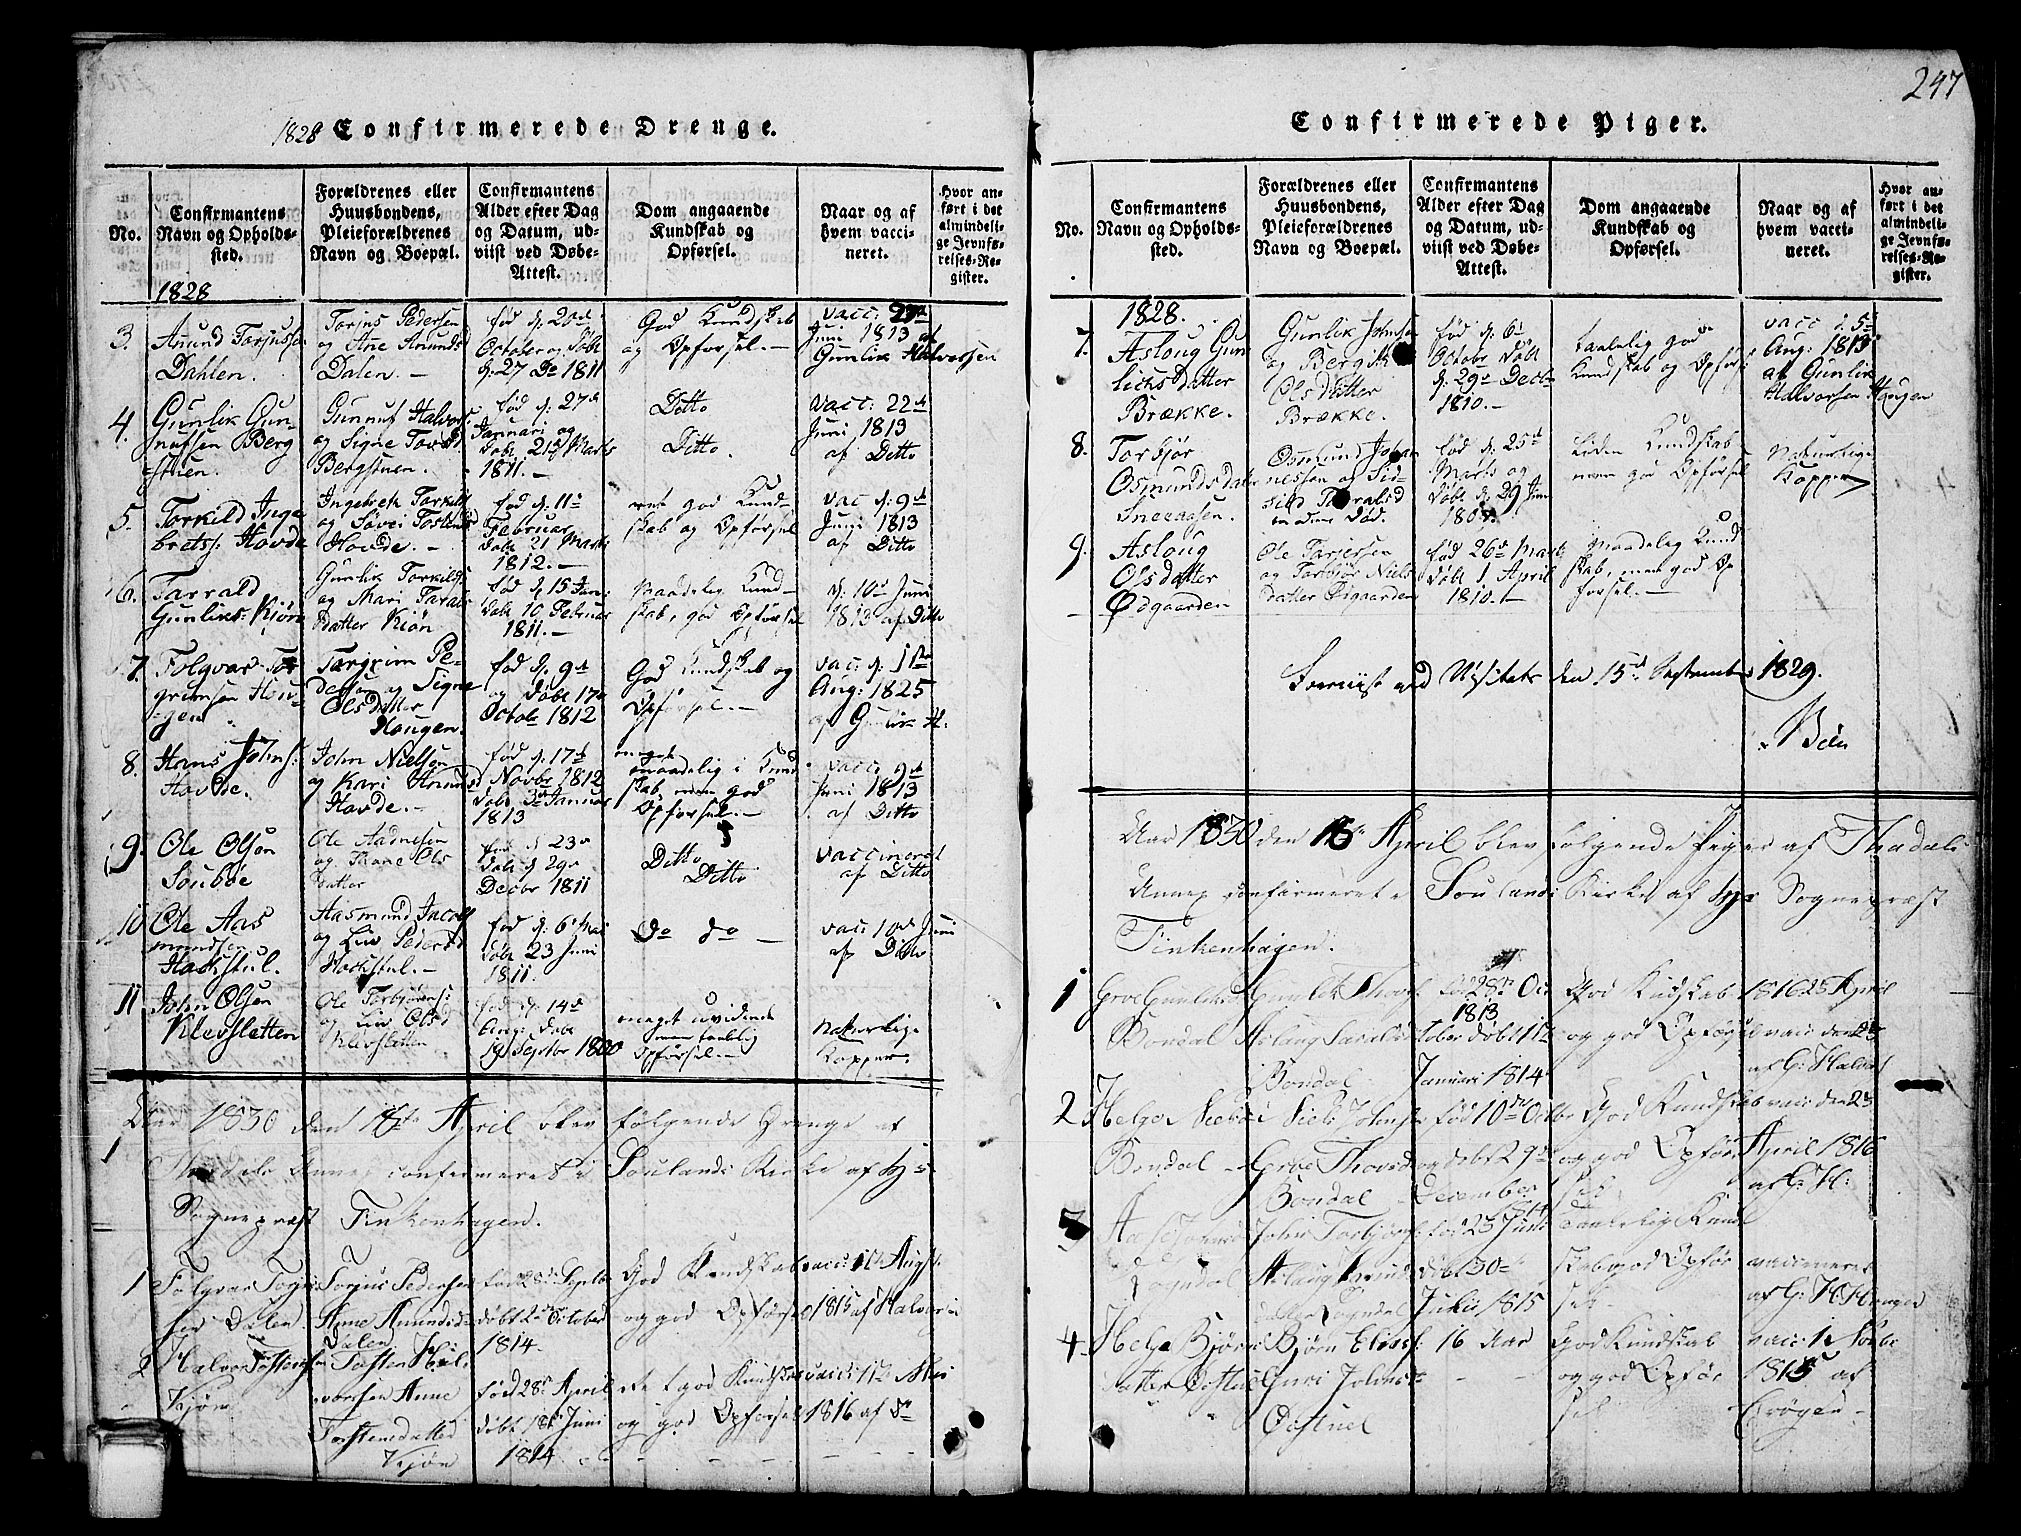 247
1828 Confirmerede Drenge.
No.
Confirmantens
Navn og Opholds-
sted.
Forældrenes eller
Huusbondens,
Pleieforældrenes
Navn og Boepæl.
Confirmantens
Alder efter Dag
og Datum, ud-
viist ved Døbe-
Attest.
Dom angaaende
Kundskab og
Opførsel.
Naar og af
hvem vacci-
neret.
Hvor an-
ført i det
almindeli-
ge Jevnfø-
relses-Re-
gister.
1828
3
Anund Torjussen
Dahlen.
Torjus Pedersen
og Ane Anunds
Dalen. –
fød d. 20de
October og døbt
d. 27 Do 1811
God Kundskab
og Opførsel. –
vacc:
Juni 1813 af
Gunlik Halvorsen
4.
Gunlik Gun-
nufsen Berg
stuen.
Gunnuf Halvors:
og Signe Tovsd
Bergstuen.
fød d. 27de
Januari og
døbt 21de Marts
1811. –
Ditto
Ditto.
vacc: 22de
Juni 1813
af Ditto
5.
Torkild Inge
brets: Hovde
Ingebreth Torkilds
og Torstens
Hovde. –
fød d. 11te
Februar
døbt 21 Marts
1812. –
god Kund-
skab og Opførsel
vac d. 9de
Juni 1813
af Ditto
6.
Tarrald
Gunliks: Kiøn
Gunlik Torkilds
og Mari Tarals
datter Kiøn
fød d. 15 Jan:
døbt 10 Februar
1811. –
Maadelig Kund-
skab, god Opførsel
d. 10de Juni
1813 af Ditto
7.
Folqvar Tor
grimsen Hou-
gen
Torgrim Pe-
dersen og Signe
Olsdatter
Hougen.
fød d. 9de
og døbt 17de
Octobr 1812
God Kundskab og
Opførsel. –
vac: d. 11te
Aug: 1825
af Gunlik H.
8.
Hans Johns:
Hovde.
John Nielsen
og Kari Anunds
Hovde. –
fød d. 17de
Novbr 1812
døbt 3de Januar
1813
meget
maadelig i Kund
skab, men god
Opførsel. –
vacc. 9de
Juni 1813
af Ditto
9.
Ole Olsen
Soubøe
Ole Aadnesen
og Ols
datter
fød d 23de
døbt d. 29de
Decbr 1811
Ditto
Ditto
Vaccineret
af Ditto
10
Ole Aas
mundsen
Hackstul.
Aasmund
og Liv Pedersd
Hackstul. –
fød d. 6te Mai
døbt 23 Juni
1811. –
do do –
vacc 10de Juni
af Ditto
11
John Olsen
Klevsletten
Ole Torbjørns:
og Liv Olsd
Klevsletten
fød d. 14de
Aug: døbt
19 Septbr 1800
meget uvidende
men taalelig
Opførsel. –
Naturlige
Kopper.
Aar 1830 den 18de April blev følgende Drenge af
Annex confirmeret i Soulands Kirke af Hr
Sognepræst Finkenhagen.
1
Folqvar Torju
sen Dalen
Torjus Pedersen
Anne Amundsda
Dalen
født 28de Septbr
døbt 2de October
1814.
God Kundskab
og god Opførsel
vacc: 11te August
1815 af Halvorsen
2
Halvor Torstensen
Kjøn
Torsten Hal-
vorsen Anne
Torstensdatter
Kjøn
født 28de April
døbt 18de Juni
1814
god Kundskab
og god Opførsel
vacc: 11te Mai
1816 af do
Confirmerede Piger.
No.
Confirmantens
Navn og Opholds-
sted.
Forældrenes eller
Huusbondens,
Pleieforældrenes
Navn og Boepæl.
Confirmantens
Alder efter Dag
og Datum, ud-
viist ved Døbe-
Attest.
Dom angaaende
Kundskab og
Opførsel.
Naar og af
hvem vacci-
neret.
Hvor an-
ført i det
almindeli-
ge Jevnfø-
relses-Re-
gister.
1828.
7.
Asloug Gun
licks datter
Brække.
Gunlik Johnsen
og Bergith
Olsdatter
Brække.
fød d. 6te
Octobr døbt
d. 29de Decbr
1810. –
taalelig god
Kundskab og Opførsel
vacc d. 5te
Aug: 1813
af Gunlik
Halvorsen Haugen
8.
Torbjør
Osmundsdatter
Sneeaasen.
Osmund Johan
nessen og
Taralsd
døde.
fød d. 25de
Marts og
døbt d. 29 Juni
Liden Kundskab
men god Opførsel
Naturlige
Kopper
9.
Asloug
Olsdatter
Ødgaarden
Ole Torjersen
og Torbjør Niels
datter Øigaarden
fød 26de Marts
døbt 1 April
1810. –
Maadelig Kund
skab, men god Op
førsel. –
Foreviist ved Visitats den 15de September 1829.
Aar 1830 den 18de April blev følgende Piger af
Annex confirmeret i Soulands Kirke af Hr Sognepræst
Finkenhagen.
1
Groe Gunliksd
Bondal
Gunlik Thovs:
Aslaug
Bondal
fød 28de Oc
1813
tober døbt 1te
Januari 1814
God Kundskab
og god Opførsel
1816 25 April
vacc: den 23
af G: Halvors
2
Helge
Bondal
Niels Johns:
Groe Thovsd
Bondal
fød 10de Octbr
og døbt 29de
December
1814
God Kundskab
og god Opfør
sel
vacc: den 23
April 1816
af G: H:
3
Aase
Sogndal
John Torbjørns:
Aslaug Amund
datter Sogndal
fød 23 Juni
døbt 30te
Julii 1815
Taalelig Kund
skab god Opfør
sel
vaccineret
af G: H: Haugen
4
Helge Bjørns
datter
Bjørn
Guri Johns
16 Aar
God Kundskab
og god Opfør
sel
vacc: 1te
1815 af